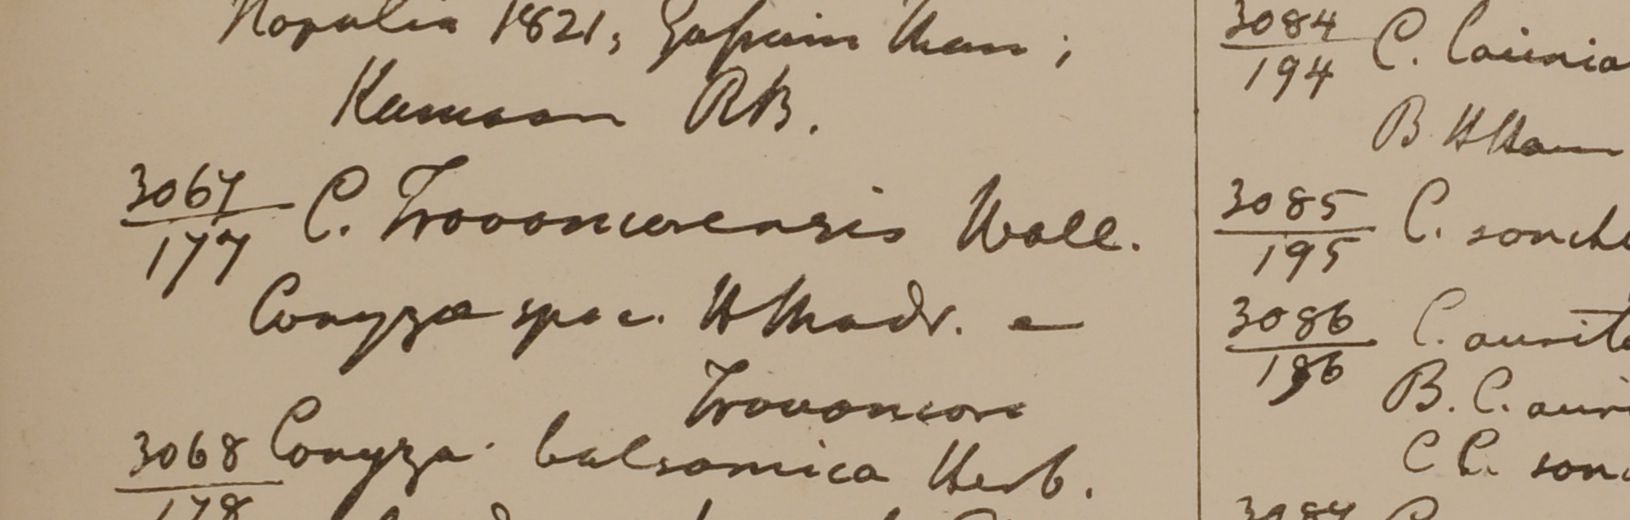 Napalia 1821, Gossain Than;
Kamaon RB.
3067
177 C. Travancorensis Wall.
Conyza spec. HMadr. e
Travancore
3068 Conyza balsamica Herb.
178
3084
194 C. 
B HHam
3085
195 C. sonch
3086
186 C. aurite
B. C. auri
C C. sonc